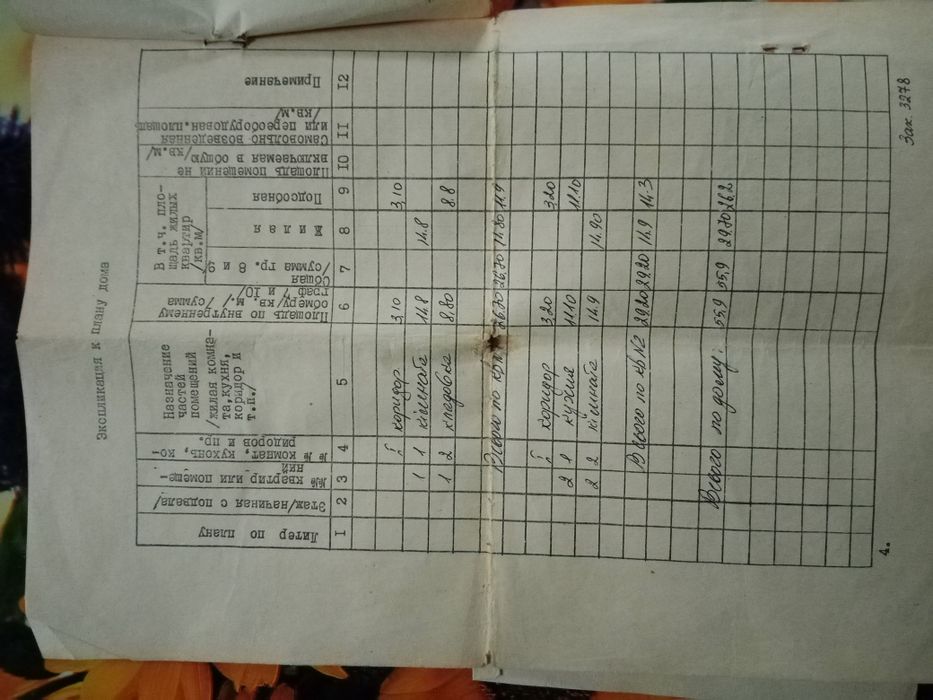 Экспликация к плану дома
Литер по плану
Этаж/начиная с подвала/
№№ квартир или помещений
№№ комнат, кухонь, коридоров и пр.
Назначение
частей
помещений
/жилая комна-
та, кухня,
коридор и
т.п./
Площадь по внутреннему
обмеру/кв.м./ /сумма
граф 7 и 10/
В т.ч. пло-
щадь жилых
квартир
/кв.м/
Общая
/сумма гр. 8 и 9
Жилая
Подсобная
Площадь помещений не
включаемая в общую /кв.м/
Самовольно возведенная
или переоборудован.площадь
/кв.м/
Примечание
1 2 3 4 5 6 7 8 9 10 11 12
I коридор 3,10 3,10
1 1 кімната 14.8 14.8
1 2 кладовка 8.80 8.8
Всего по кв 26.70 26.70 14.80 11.9
I коридор 3.20 3.20
2 1 кухня 11.10 11.10
2 2 кімната 14.9 14.90
Всего по кв N2 29.20 29.20 14.9 14.3
Всего по дому: 55,9 55,9 29.70 26.2
4.
Зак. 3278